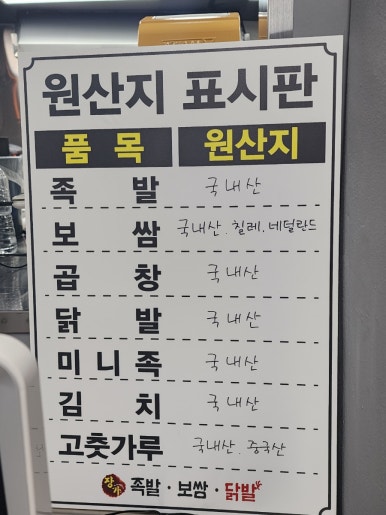 원산지 표시판
품 목 원산지
족 발 국내산
보 쌈 국내산. 칠레. 네덜란드
곱 창 국내산
닭 발 국내산
미 니 족 국내산
김 치 국내산
고춧가루 국내산. 중국산
장가 족발·보쌈·닭발